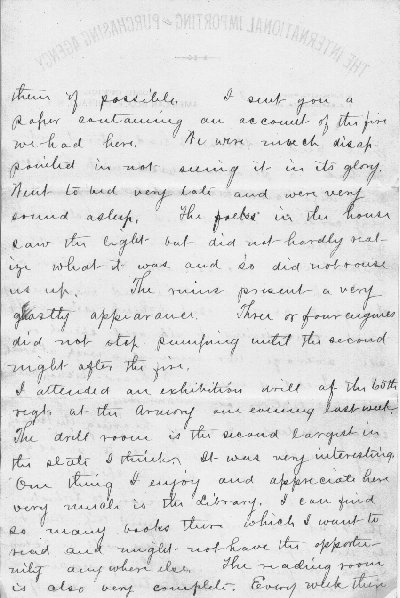 THE INTERNATIONAL IMPORTING & PURCHASING AGENCY
them if possible. I sent you a
paper containing an account of the fire
we had here. We were much disap-
pointed in not seeing it in its glory.
Went to bed very late and were very
sound asleep. The folks in the house
saw the light but did not hardly real-
ize what it was and so did not rouse
us up. The ruins present a very
ghastly appearance. Three or four engines
did not stop pumping until the second
night after the fire.
I attended an exhibition drill of the 65th
regt. at the Armory one evening last week.
The drill room is the second largest in
the state I think. It was very interesting.
One thing I enjoy and appreciate here
very much is the Library. I can find
so many books there which I want to
read and might not have the opportu-
nity anywhere else. The reading room
is also very complete. Every week there